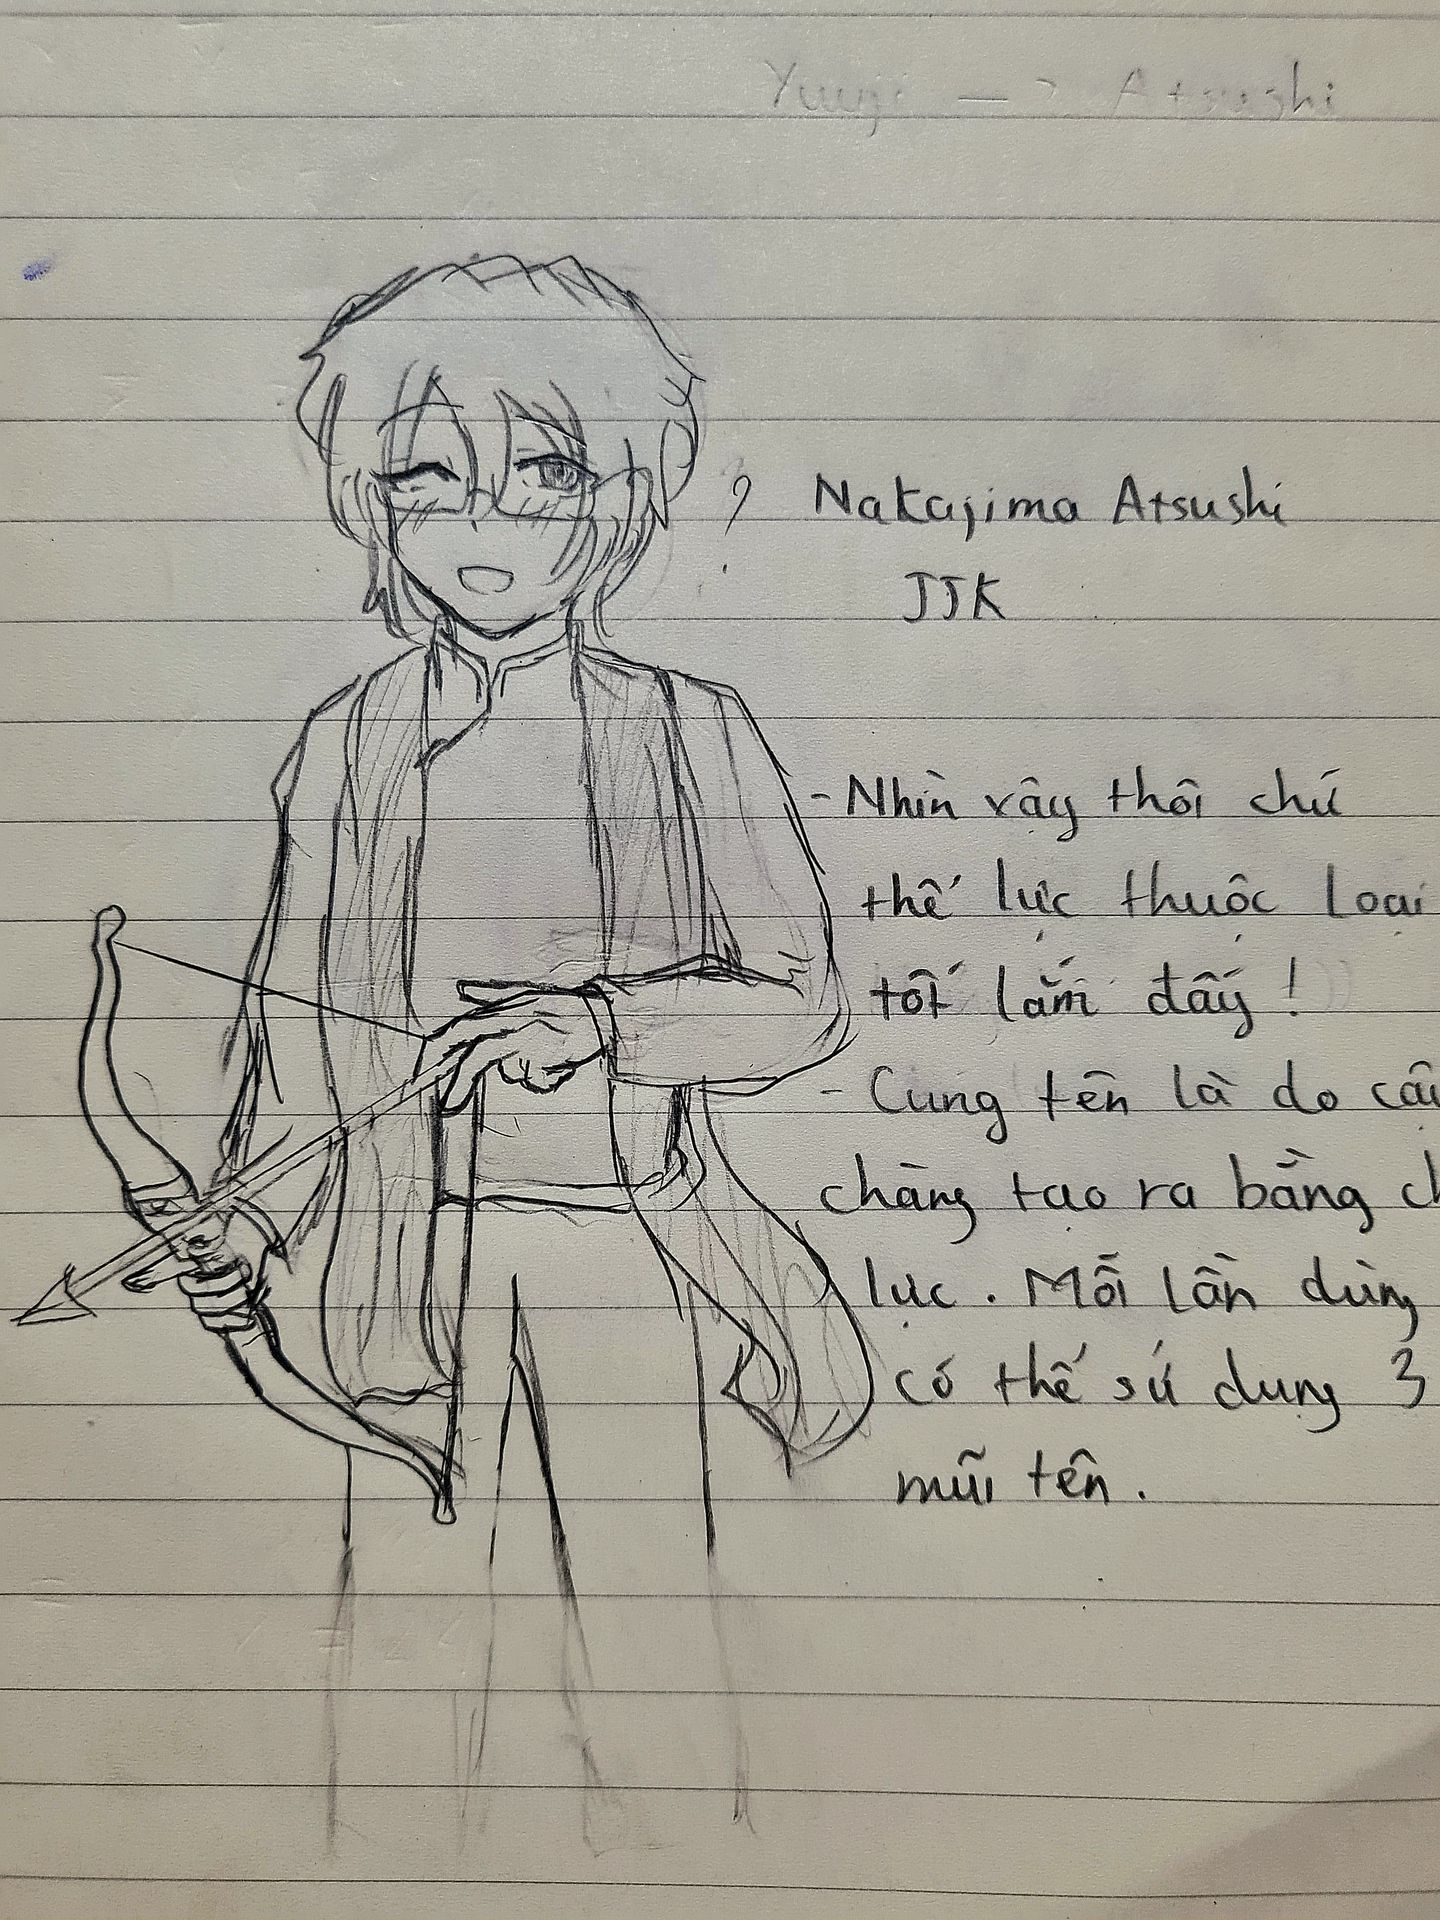 Yuuji —> Atsushi
? Nakajima Atsushi
JJK
- Nhìn vậy thôi chứ
thể lực thuộc loại
tốt lắm đấy !
- Cung tên là do cậu
chàng tạo ra bằng ch
lực . Mỗi lần dùng
có thể sử dụng 3
mũi tên .